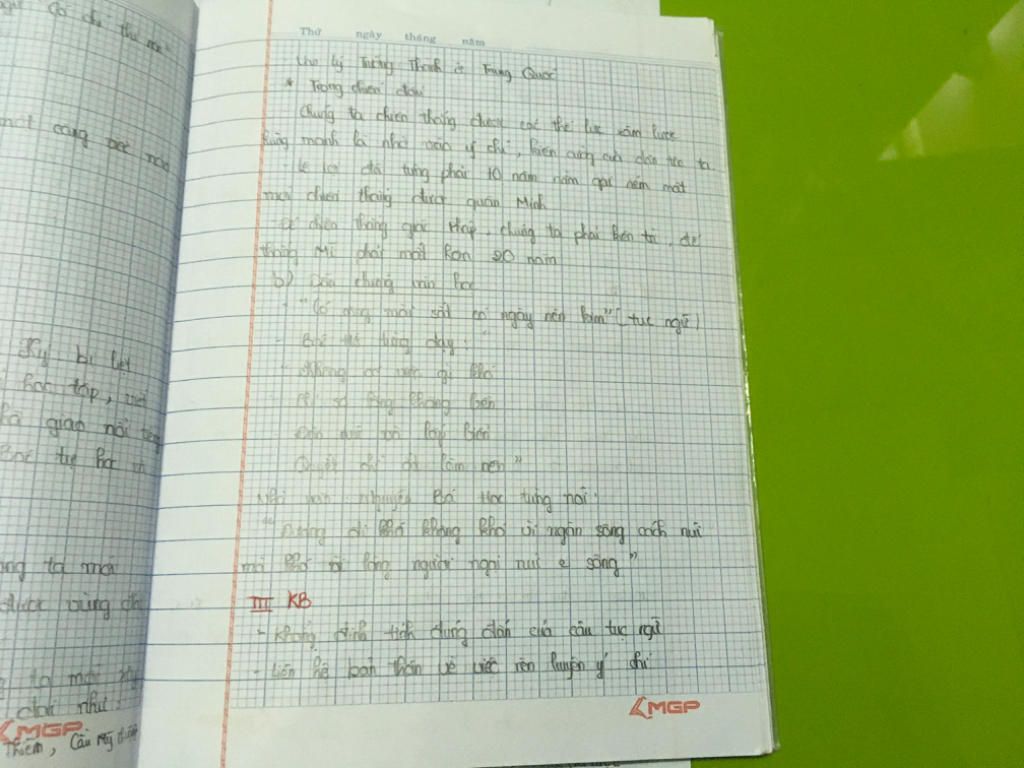 Thứ ngày tháng năm
Lý Tướng Thanh ở Trung Quốc
* Trong chiến đấu
Chúng ta chiến thắng được các thế lực xâm lược
hùng mạnh là nhờ vào ý chí, kiên cường của dân tộc ta
Lê Lợi đã từng phải 10 năm nằm gai nếm mật
mới chiến thắng được quân Minh
Để chiến thắng giặc Pháp, chúng ta phải kiên trì, để
thắng Mĩ phải mất hơn 20 năm
b) Dẫn chứng văn học
- "Có công mài sắt có ngày nên kim" (tục ngữ)
- Bác Hồ từng dạy:
- Không có việc gì khó
- Chỉ sợ lòng không bền
- Đào núi và lấp biển
Quyết chí ắt làm nên"
Nhà văn Nguyễn Bá Học từng nói:
"Đường đi khó không khó vì ngăn sông cách núi
mà khó vì lòng người ngại núi e sông"
III KB
- Khẳng định tính đúng đắn của câu tục ngữ
- Liên hệ bản thân về việc rèn luyện ý chí
MGP
Ký bị liệt
học tập, trở
gian nổi
tự học
ta mới
được vùng
ta mới
đại như:
MGP
Thiêm, Cầu Mỹ